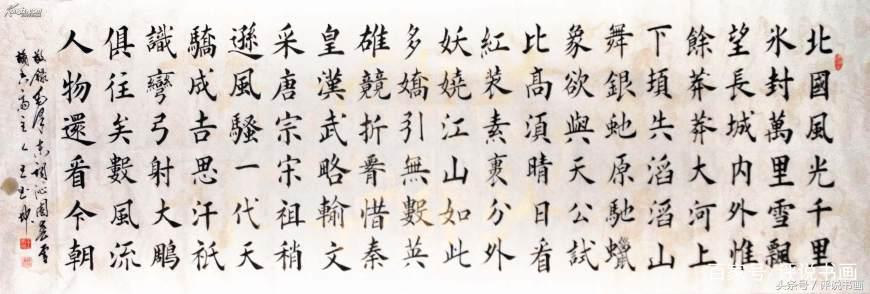 北國風光千里
氷封萬里雪飄
望長城内外惟
餘莽莽大河上
下頓失滔滔山
舞銀虵原馳蠟
象欲與天公試
比高湏晴日看
紅装素裹分外
妖嬈江山如此
多嬌引無數英
雄競折腰惜秦
皇漢武略輸文
采唐宗宋祖稍
遜風騷一代天
驕成吉思汗祇
識彎弓射大鵰
俱往矣數風流
人物還看今朝
敬録毛澤東詞沁園春雪
主人王玉
百家号/评说书画
头条号 / 评说书画